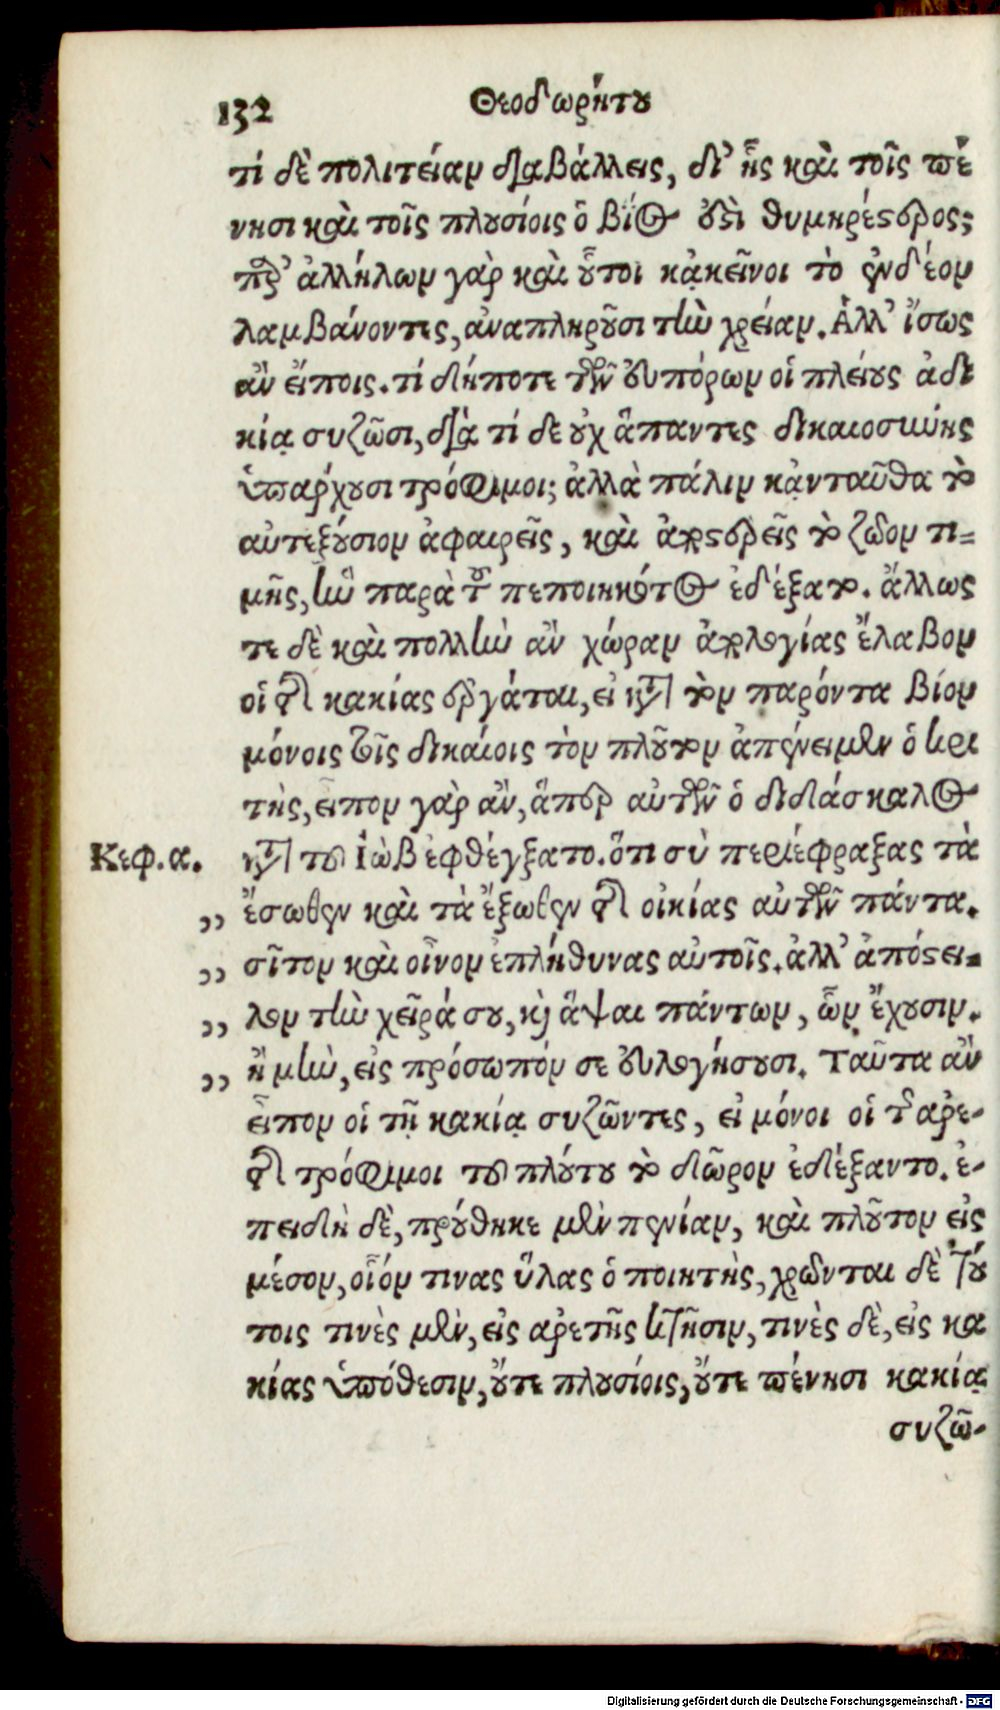 132 Θεοδωρήτου
τί δὲ πολιτείαν διαβάλλεις, δι’ ἧς καὶ τοῖς πέ
νησι καὶ τοῖς πλουσίοις ὁ βίος ἐστὶ θυμηρέστερος;
παρ’ ἀλλήλων γὰρ καὶ οὗτοι κᾀκεῖνοι τὸ ἐνδέον
λαμβάνοντες, ἀναπληροῦσι τὴν χρείαν. Ἀλλ’ ἴσως
ἂν εἴποις. τί δήποτε τῶν εὐπόρων οἱ πλείους ἀδι
κίᾳ συζῶσι, διὰ τί δε οὐχ ἅπαντες δικαιοσύνης
ὑπάρχουσι τρόφιμοι; ἀλλὰ πάλιν κᾀνταῦθα τὸ
αὐτεξούσιον ἀφαιρεῖς, καὶ ἀποστερεῖς τὸ ζῶον τι=
μῆς, ἣν παρὰ τοῦ πεποιηκότος ἐδέξατο. ἄλλως
τε δὲ καὶ πολλὴν ἂν χώραν ἀπολογίας ἔλαβον
οἱ τῆς κακίας ἐργάται, εἰ κατὰ τὸν παρόντα βίον
μόνοις τοῖς δικαίοις τὸν πλοῦτον ἀπένειμεν ὁ κρι
τὴς, εἶπον γὰρ ἂν, ἅπερ αὐτῶν ὁ διδάσκαλος
Κεφ. α. κατὰ τοῦ Ἰὼβ ἐφθέγξατο. ὅτι σὺ περιέφραξας τὰ
,, ἔσωθεν καὶ τὰ ἔξωθεν τῆς οἰκίας αὐτῶν πάντα.
,, σῖτον καὶ οἶνον ἐπλήθυνας αὐτοῖς. ἀλλ’ ἀπόστει=
,, λον τὴν χεῖρά σου, καὶ ἅψαι πάντων, ὧν ἔχουσιν.
,, ἦ μὴν, εἰς πρόσωπόν σε εὐλογήσουσι. Ταῦτα ἂν
εἶπον οἱ τῇ κακίᾳ συζῶντες, εἰ μόνοι οἱ τῆς ἀρε-
τῆς τρόφιμοι τοῦ πλούτου τὸ δῶρον ἐδέξαντο. ἐ-
πειδὴ δὲ, προύθηκε μὲν πενίαν, καὶ πλοῦτον εἰς
μέσον, οἷόν τινας ὕλας ὁ ποιητὴς, χρῶνται δὲ τού
τοις τινὲς μὲν, εἰς ἀρετῆς κτῆσιν, τινὲς δὲ, εἰς κα
κίας ὑπόθεσιν, οὔτε πλουσίοις, οὔτε πένησι κακίᾳ
συζῶ-
Digitalisierung gefördert durch die Deutsche Forschungsgemeinschaft - DFG